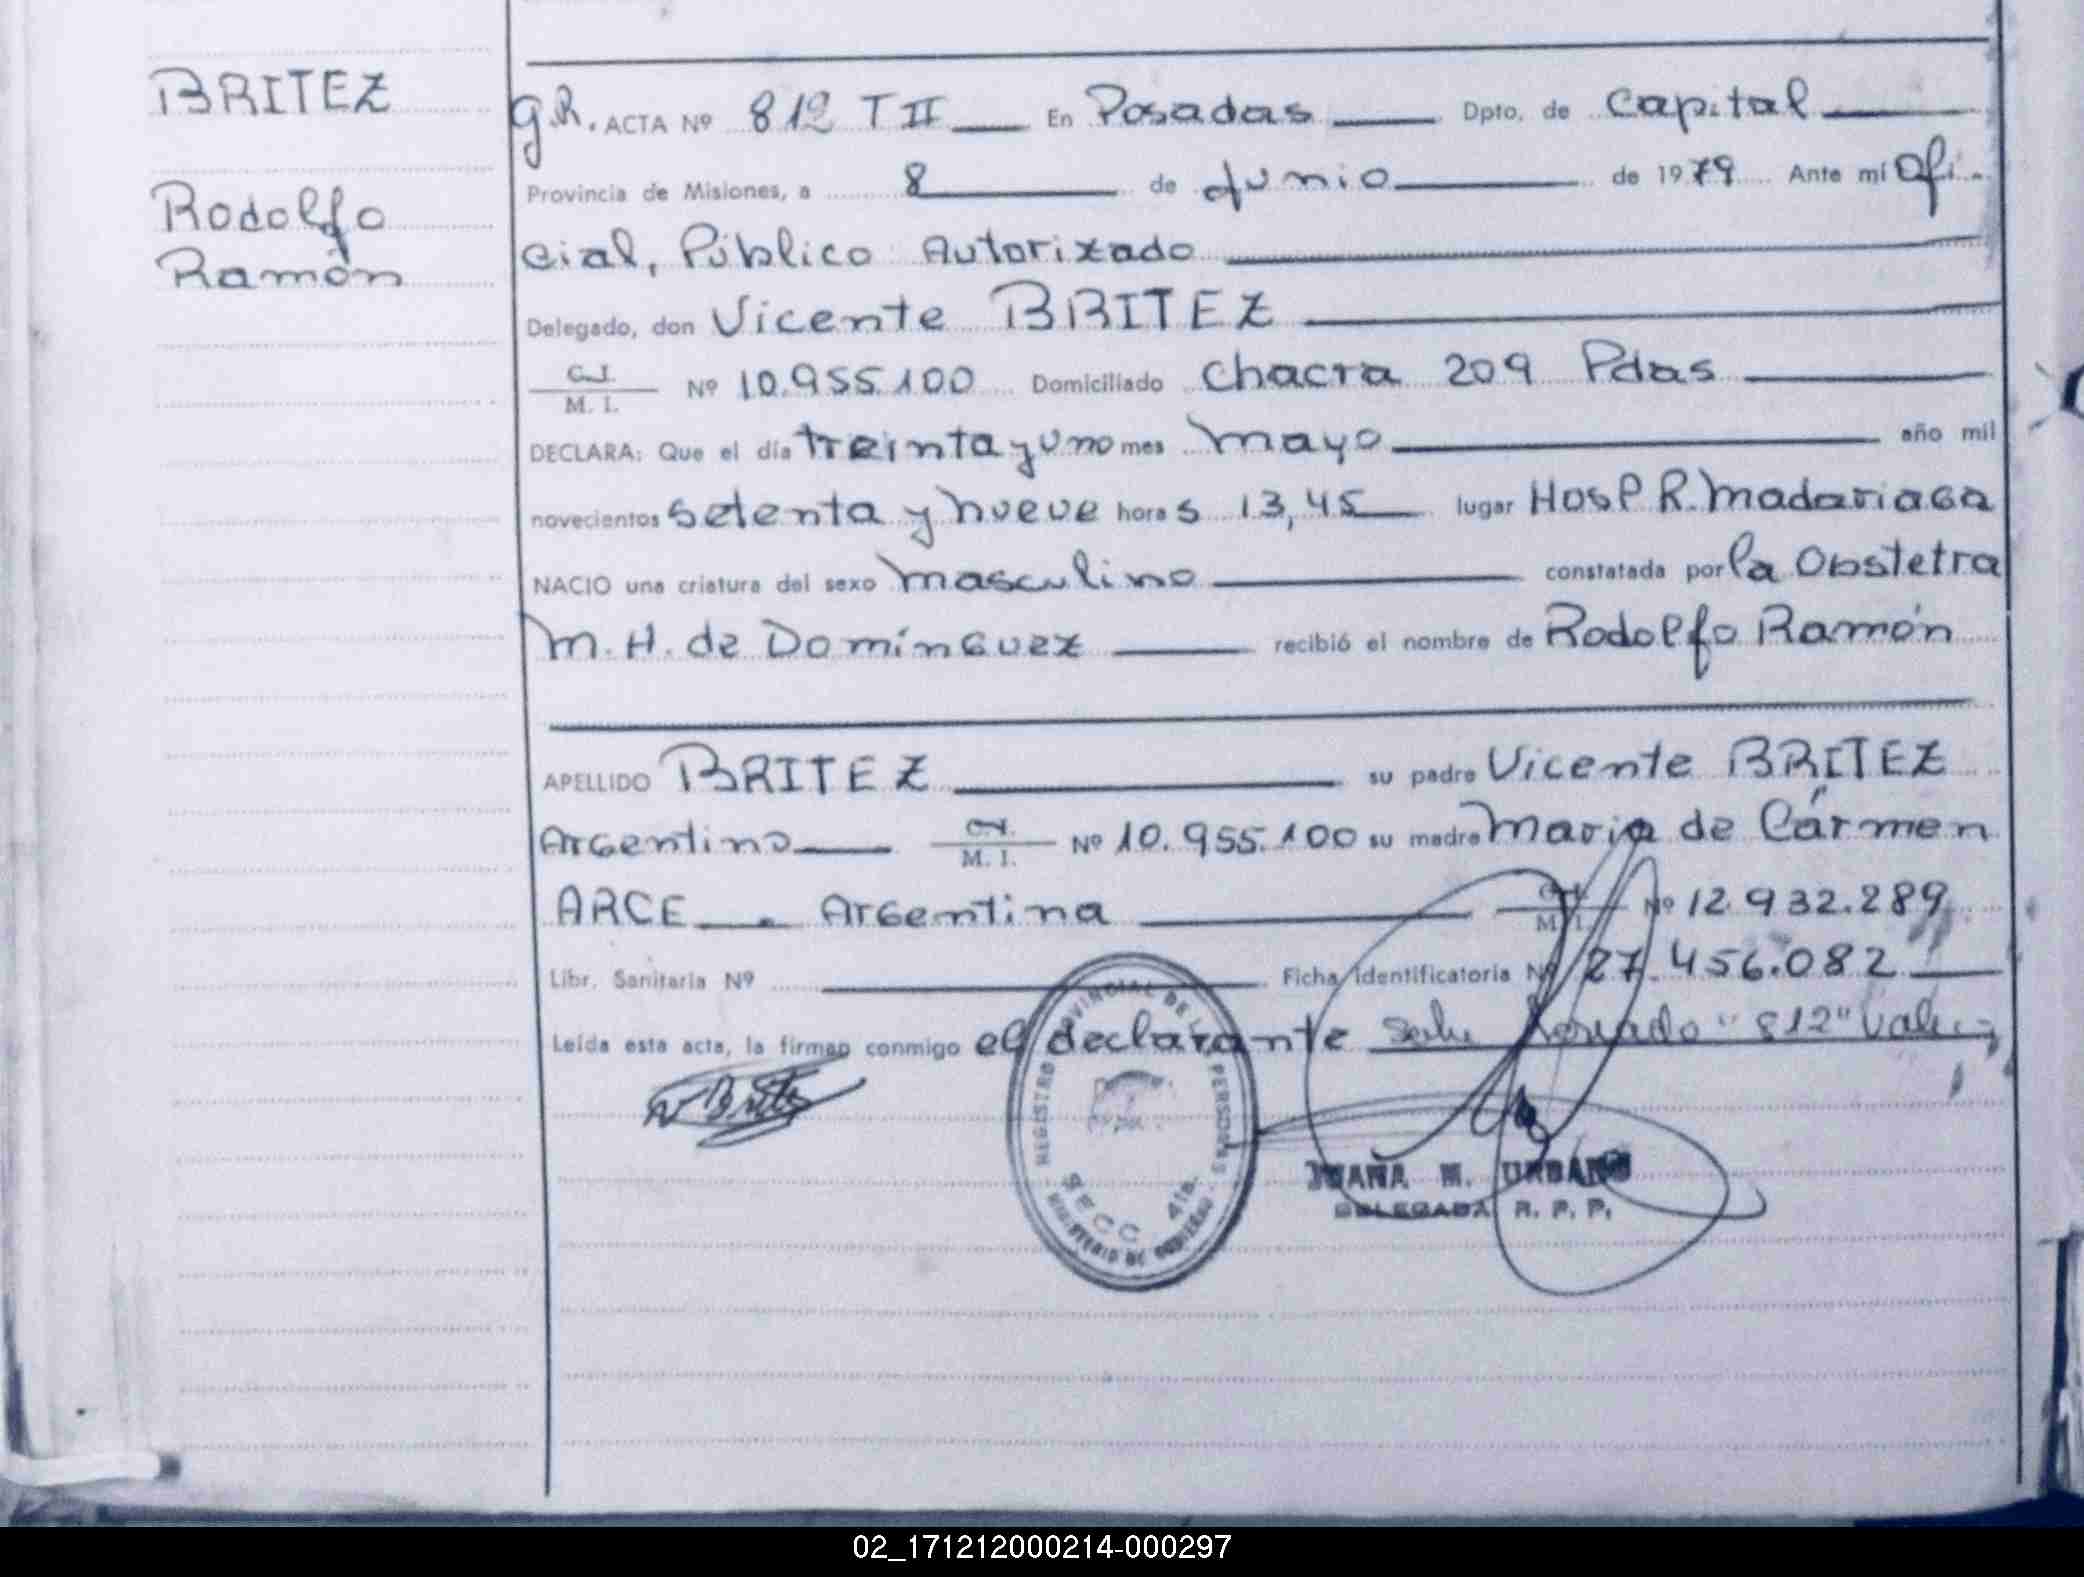 BRITEZ
Rodolfo
Ramón
g.R. ACTA Nº 812 T II En Posadas Dpto. de Capital
Provincia de Misiones, a 8 de Junio de 1979 Ante mí Ofi-
cial, Público Autorizado
Delegado, don Vicente BRITEZ
C.I. M. I. Nº 10.955.100 Domiciliado Chacra 209 Pdas
DECLARA: Que el día treinta y uno mes mayo año mil
novecientos setenta y nueve horas 13,45 lugar Hosp R. Madariaga
NACIO una criatura del sexo masculino constatada por la Obstetra
M. H. de Domínguez recibió el nombre de Rodolfo Ramón
APELLIDO BRITEZ su padre Vicente BRITEZ
Argentino C.I. M. I. Nº 10.955.100 su madre Maria de Cármen
ARCE . Argentina C.I. M. I. Nº 12.932.289
Libr. Sanitaria Nº Ficha Identificatoria Nº 27.456.082
Leída esta acta, la firman conmigo el declarante "812" Vale
V Britez
REGISTRO PROVINCIAL DE LAS PERSONAS
SECC 4ta.
MINISTERIO DE GOBIERNO
JUANA M. URBANO
DELEGADA R. P. P.
02_171212000214-000297